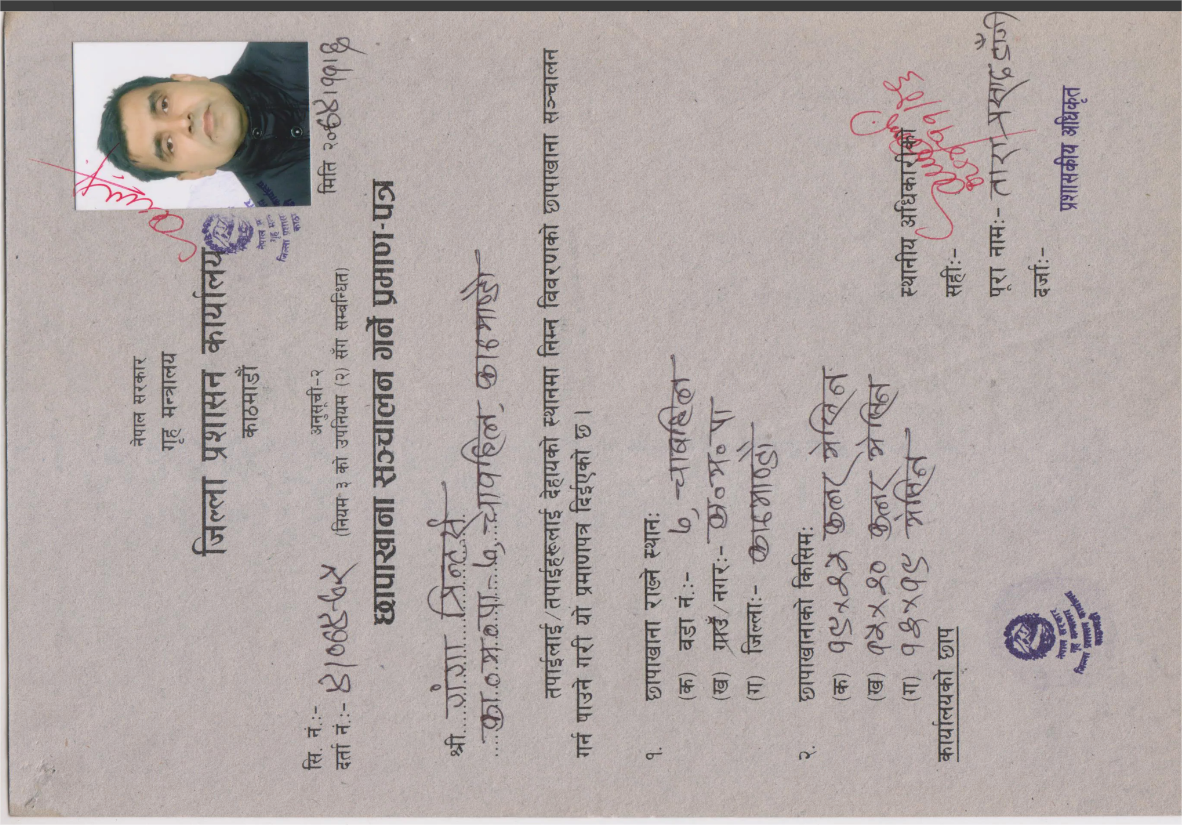 नेपाल सरकार
गृह मन्त्रालय
जिल्ला प्रशासन कार्यालय
काठमाडौं
सि. नं.:-
अनुसूची-२
मिति
दर्ता नं.:-
(नियम ३ को उपनियम (२) सँग सम्बन्धित)
छापाखाना सञ्चालन गर्ने प्रमाण-पत्र
श्री गंगा प्रिन्टर्स
का.म.न.पा.-७, चावहिल, काठमाण्डौ
तपाईलाई/तपाईहरूलाई देहायको स्थानमा निम्न विवरणको छापाखाना सञ्चालन
गर्न पाउने गरी यो प्रमाणपत्र दिईएको छ।
१. छापाखाना राख्ने स्थान:
(क) वडा नं.:- ७, चाबहिल
(ख) गाउँ/नगर:- का०म०पा
(ग) जिल्ला:- काठमाण्डौ
२. छापाखानाको किसिम:
(क) १९×२५ कलर मेसिन
(ख) १५×२० कलर मेसिन
(ग) मेसिन
कार्यालयको छाप
स्थानीय अधिकारीको
सही:-
पूरा नाम:- तारा प्रसाद
दर्जा:-
प्रशासकीय अधिकृत
नेपाल सरकार
गृह मन्त्रालय
जिल्ला प्रशासन कार्यालय
काठमाडौं